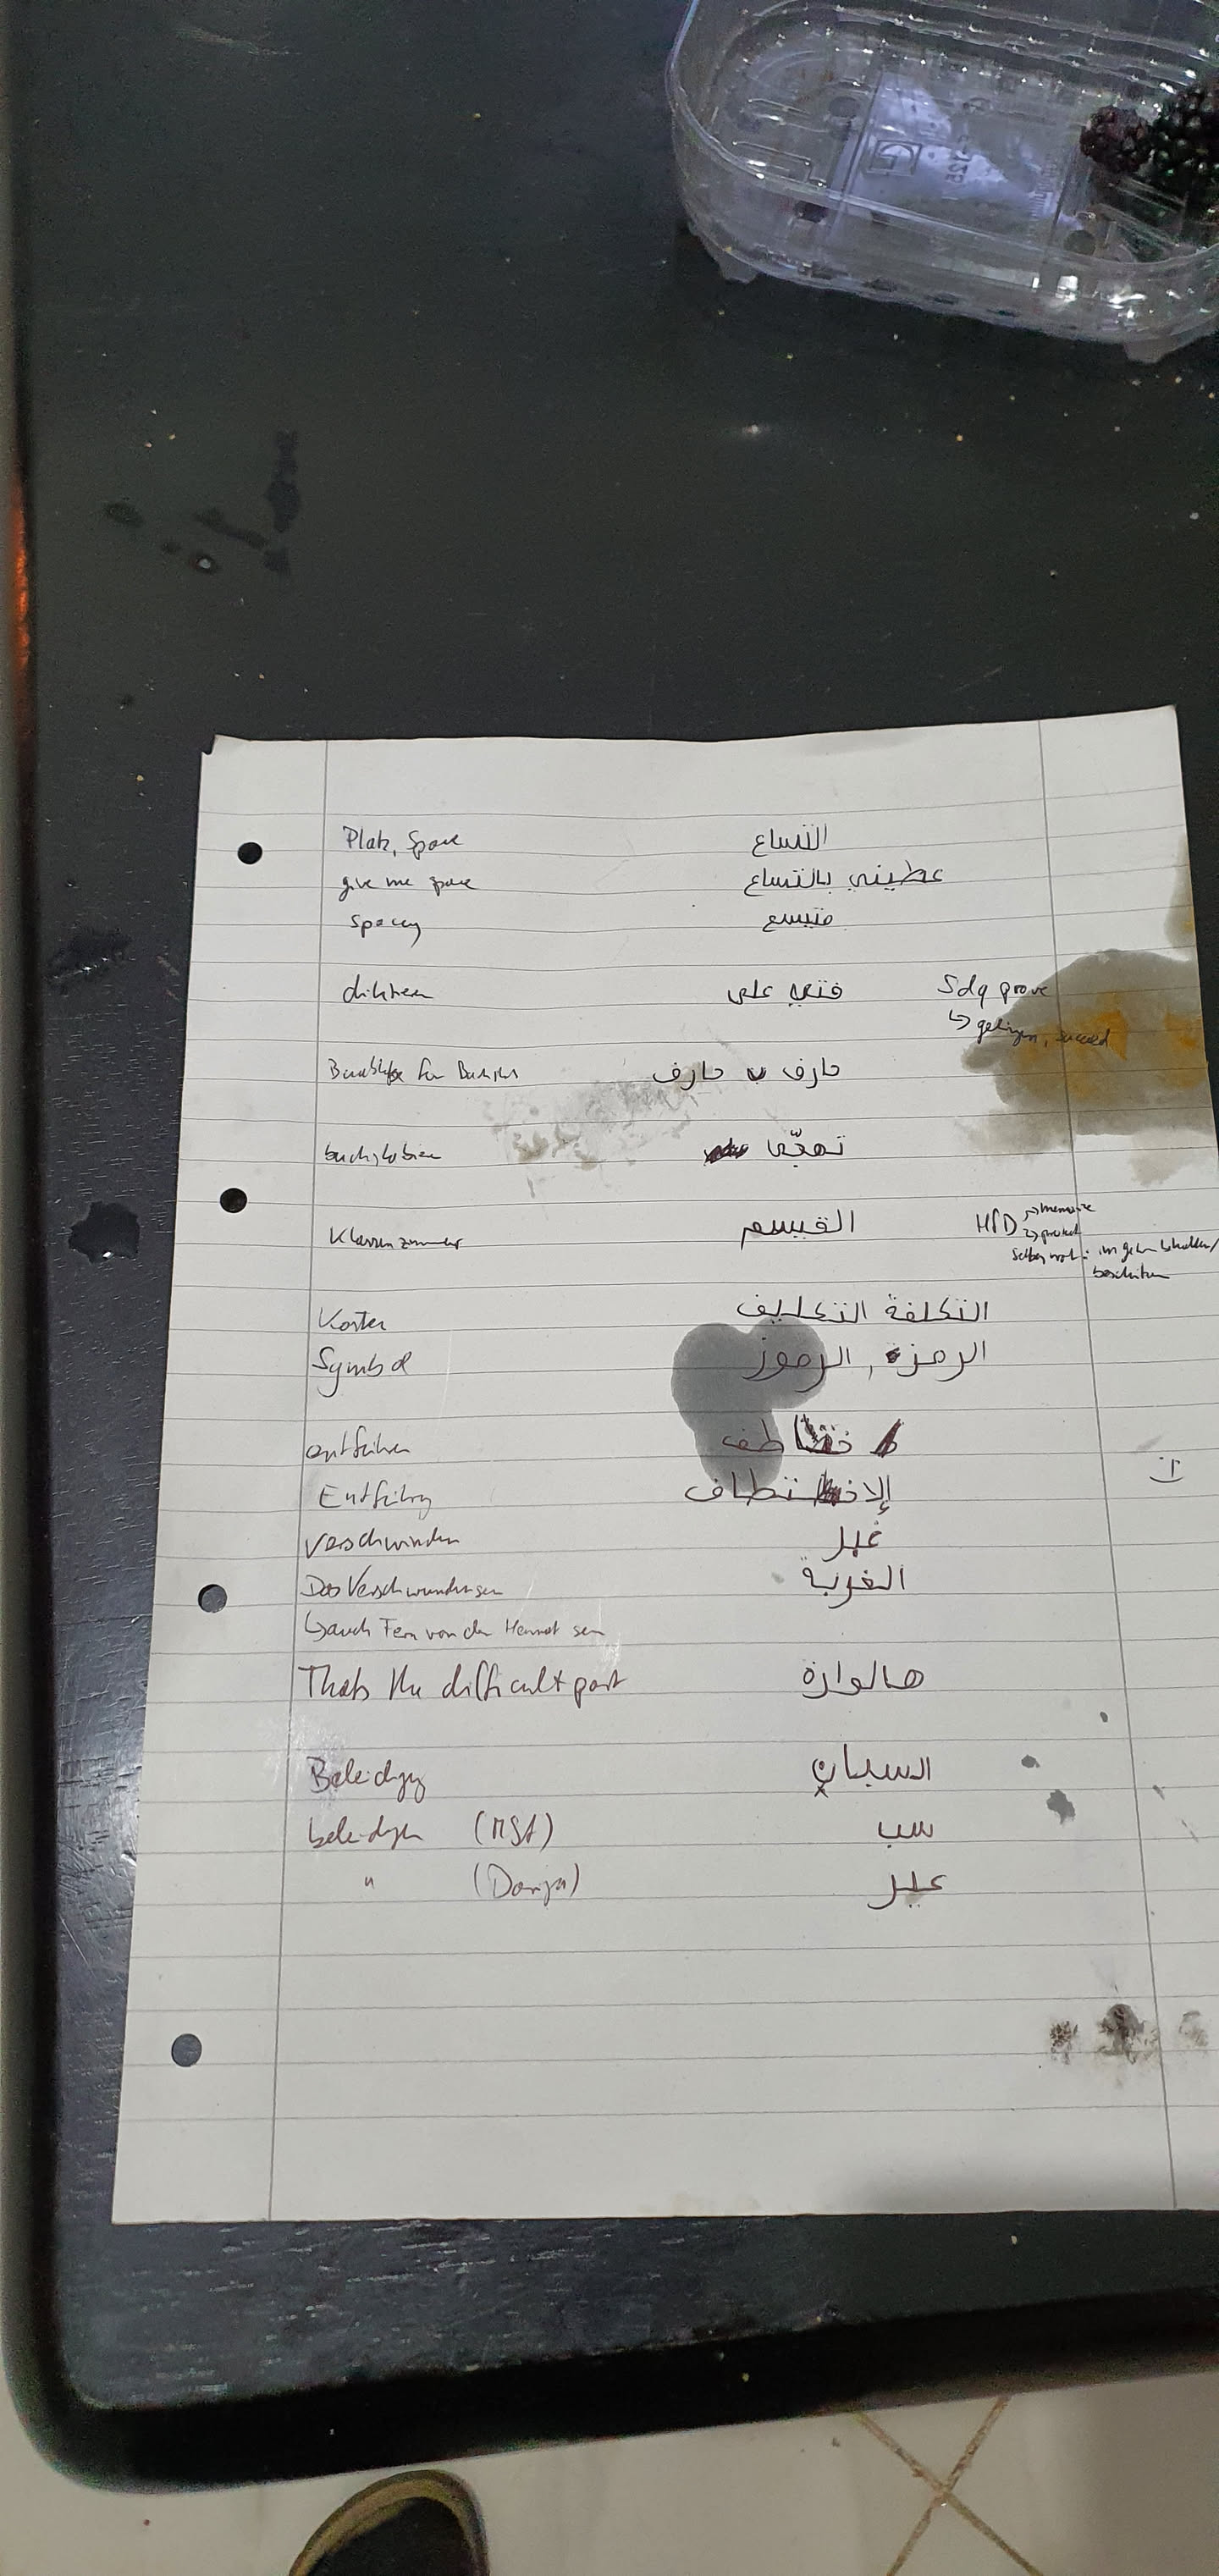 Platz, Space التساع
give me space عطيني بالتساع
spacey متيسع
diktieren فتي على Sdq prove
↳ gelingen, succeed
Buchstabe für Buchstabe حارف ب حارف
buchstabieren تهجّى
Klassenzimmer القيسم HfD → memorize
→ protect
selber wort: im gehirn behalten/
beschützen
Kosten التكلفة التكليف
Symbol الرمزة, الرموز
entführen خطف
Entführung الإختطاف
verschwinden غبر
Das Verschwundensein الغربة
↳ auch Fern von der Heimat sein
Thats the difficult part هالوارة
Beleidigung السبان
beleidigen (MSA) سب
" (Darija) عاير